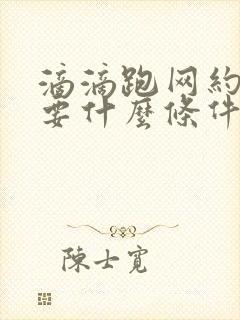 滴滴跑网約
要什麼條件
陳士寬